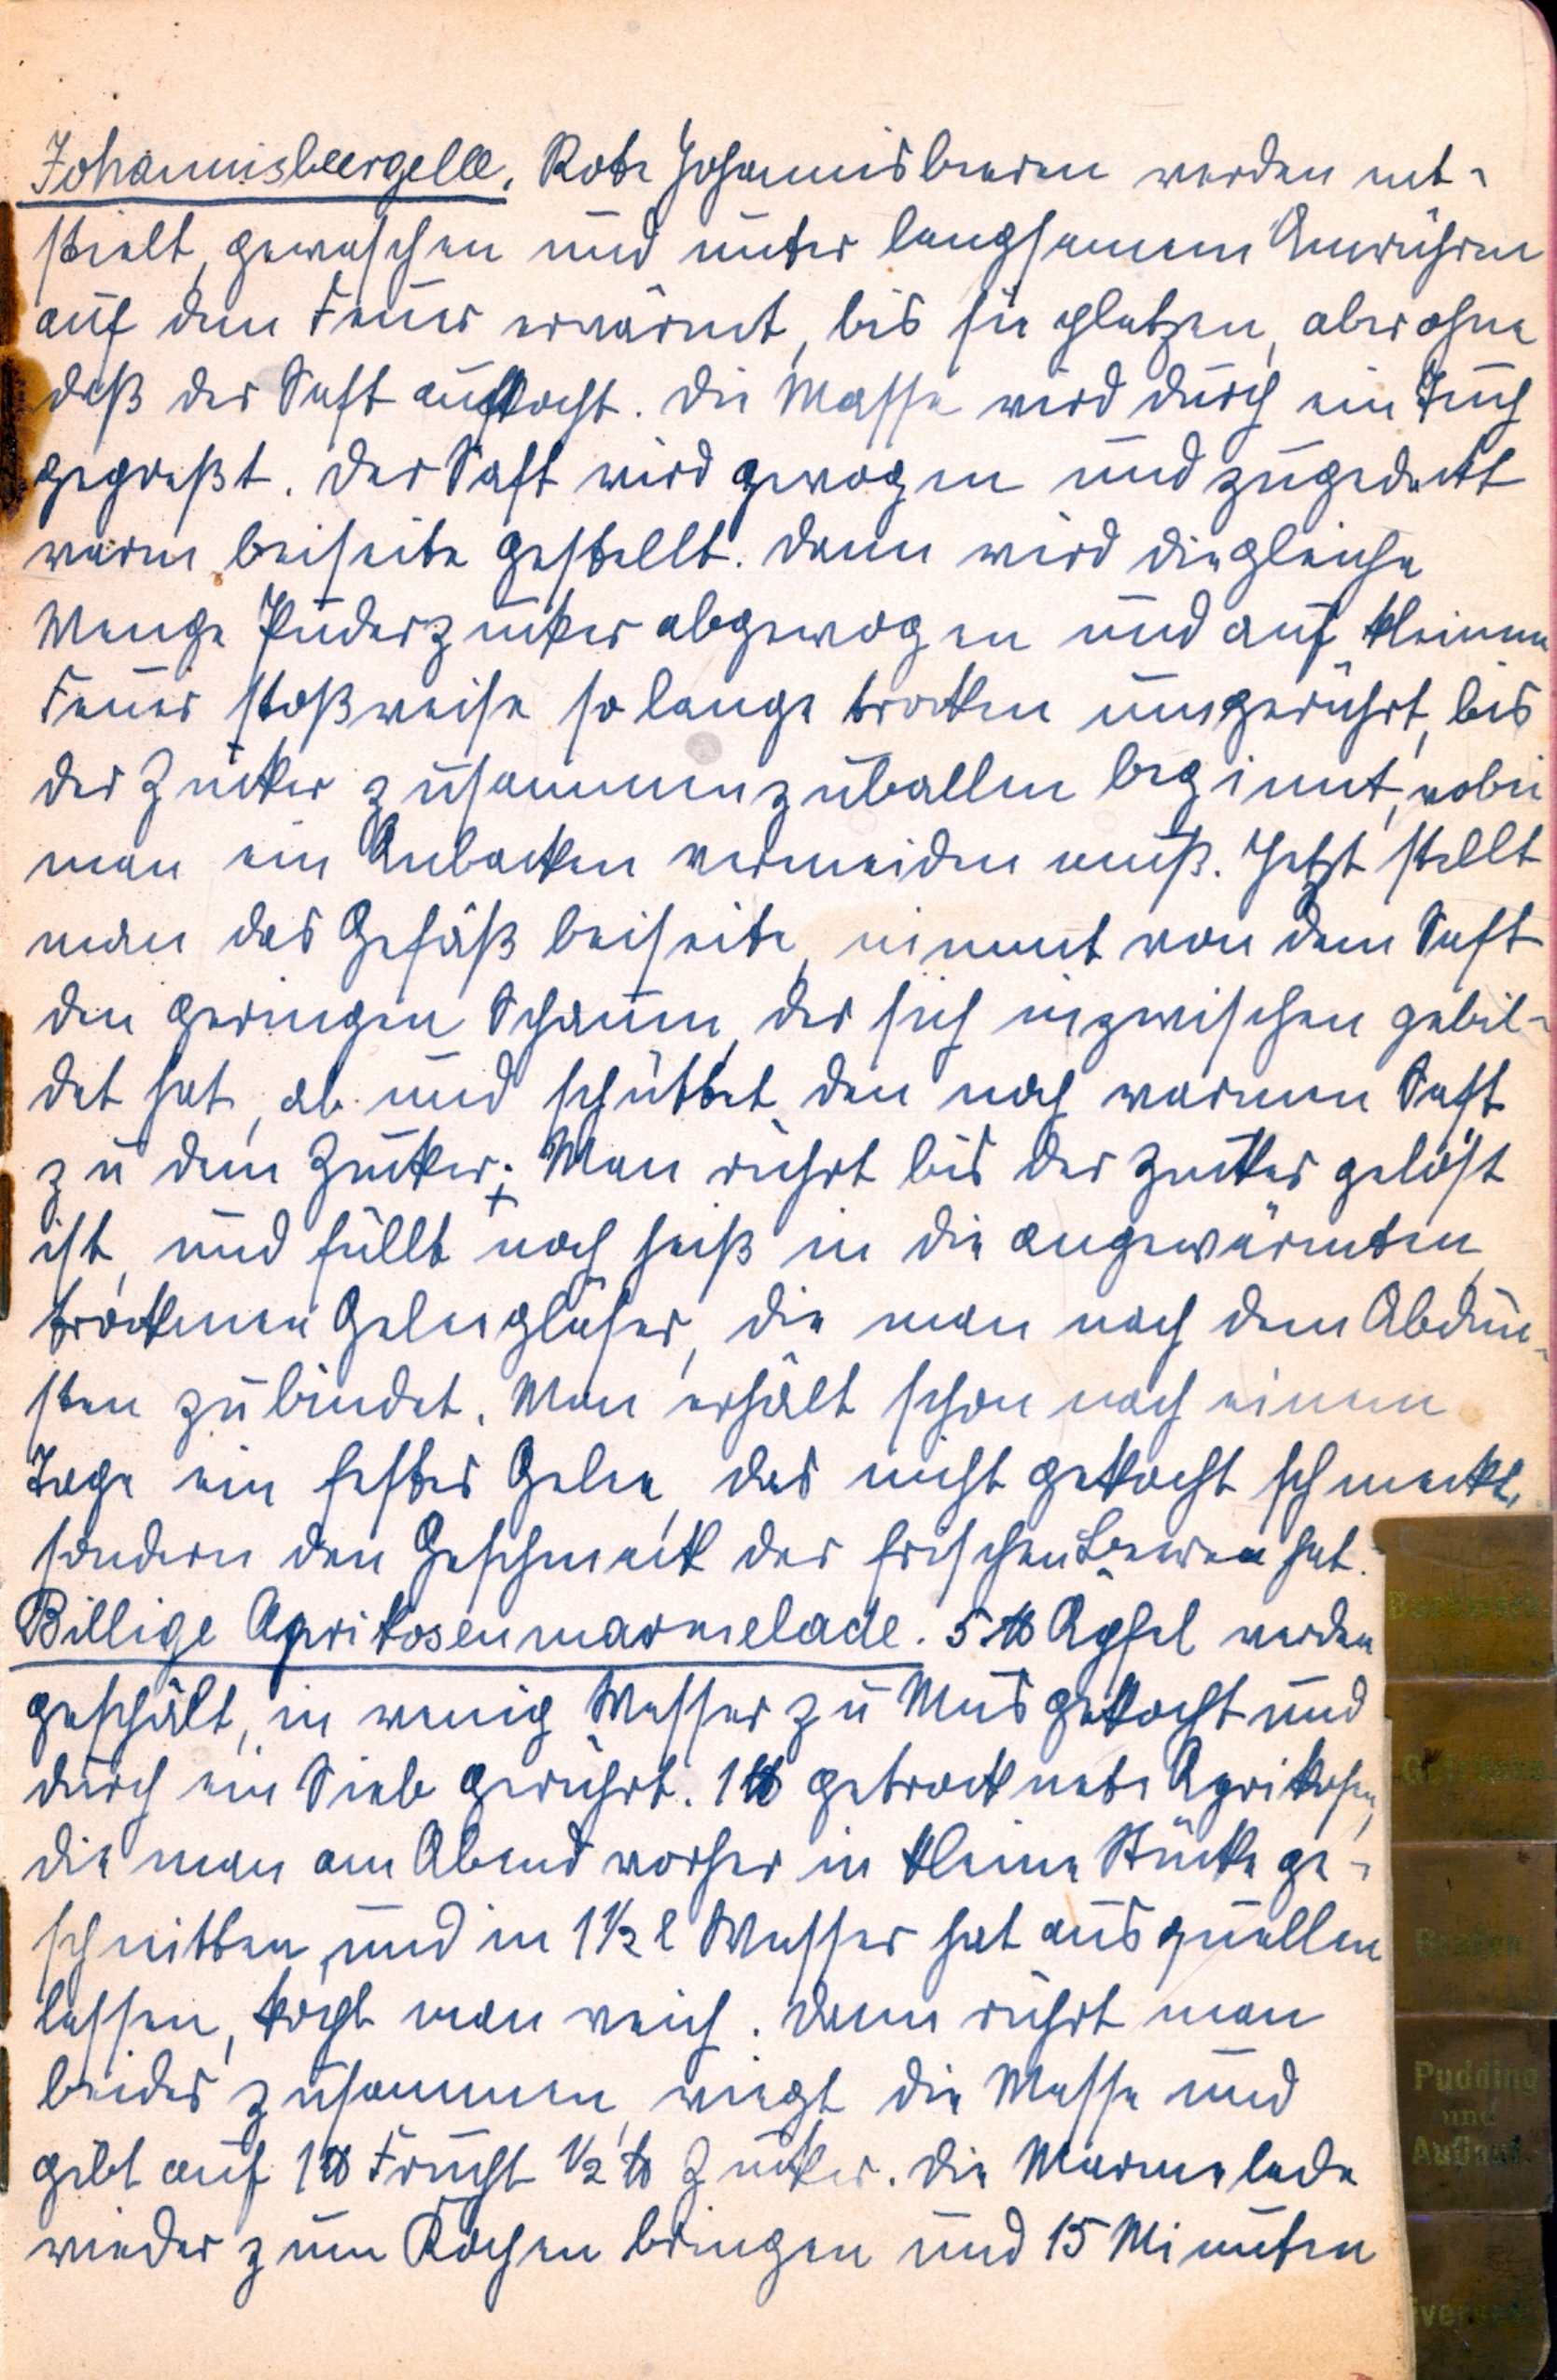 Johannisbeergelee. Rote Johannisbeeren werden ent-
stielt, gewaschen und unter langsamem Umrühren
auf dem Feuer erwärmt, bis sie platzen, aber ohne
daß der Saft aufkocht. Die Masse wird durch ein Tuch
gepreßt. Der Saft wird gewogen und zugedeckt
warm beiseite gestellt. Dann wird die gleiche
Menge Puderzucker abgewogen und auf kleinem
Feuer stoßweise so lange trocken umgerührt, bis
der Zucker zusammenzuballen beginnt, wobei
man ein Anbacken vermeiden muß. Jetzt stellt
man das Gefäß beiseite, nimmt von dem Saft
den geringen Schaum, der sich inzwischen gebil-
det hat, ab und schüttet den noch warmen Saft
zu dem Zucker; Man rührt bis der Zucker gelöst
ist, und füllt noch heiß in die angewärmten,
trockenen Geleegläser, die man nach dem Abdün-
sten zubindet. Man erhält schon nach einem
Tage ein festes Gelee, das nicht gekocht schmeckt,
sondern den Geschmack der frischen Beeren hat.
Billige Aprikosenmarmelade. 5 ℔ Äpfel werden
geschält, in wenig Wasser zu Mus gekocht und
durch ein Sieb gerührt. 1 ℔ getrocknete Aprikosen,
die man am Abend vorher in kleine Stücke ge-
schnitten und in 1 ½ l Wasser hat ausquellen
lassen, kocht man weich. Dann rührt man
beides zusammen, wiegt die Masse und
gibt auf 1 ℔ Frucht ½ ℔ Zucker. Die Marmelade
wieder zum Kochen bringen und 15 Minuten
Backwerk
Getränke
Braten
Pudding
und
Auflauf.